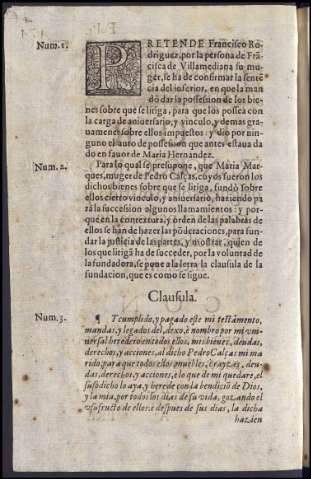 Num. 1. PRETENDE Francisco Ro-
driguez, por la persona de Frã
cisca de Villamediana su mu-
ger, se ha de confirmar la sentẽ
cia del inferior, en que la man
dò dar la possession de los bie
nes sobre que se litiga, para que los possea con
la carga de aniuersario, y vinculo, y demas gra
uamenes sobre ellos impuestos: y dio por nin-
guno el auto de possession que antes estaua da
do en fauor de Maria Hernandez.
Num. 2. Para lo qual se presupone, que Maria Mar-
ques, muger de Pedro Calças, cuyos fueron los
dichos bienes sobre que se litiga, fundò sobre
ellos cierto vinculo, y aniuersario, haziendo pa
rà la succession algunos llamamientos: y por-
que en la contextura, y orden de las palabras de
ellos se han de hazer las põderaciones, para fun-
dar la justicia de las partes, y mostrar, quien de
los que litigã ha de succeder, por la voluntad de
la fundadora, se pone a la letra la clausula de la
fundacion, que es como se sigue.
Clausula.
Num. 3. ¶ Y cumplido, y pagado este mi testamento,
mandas, y legados del, dexo, è nombro por mi vni-
uersal heredero en todos ellos, mis bienes, deudas,
derechos, y acciones, al dicho Pedro Calças mi ma
rido, para que todos ellos, muebles, è rayzes, deu-
das, derechos, y acciones, è lo que de mi quedare, el
susodicho lo aya, y herede con la bendiciõ de Dios,
y la mia, por todos los dias de su vida, gozando el
vsufructo de ellos: è despues de sus dias, la dicha
hazien